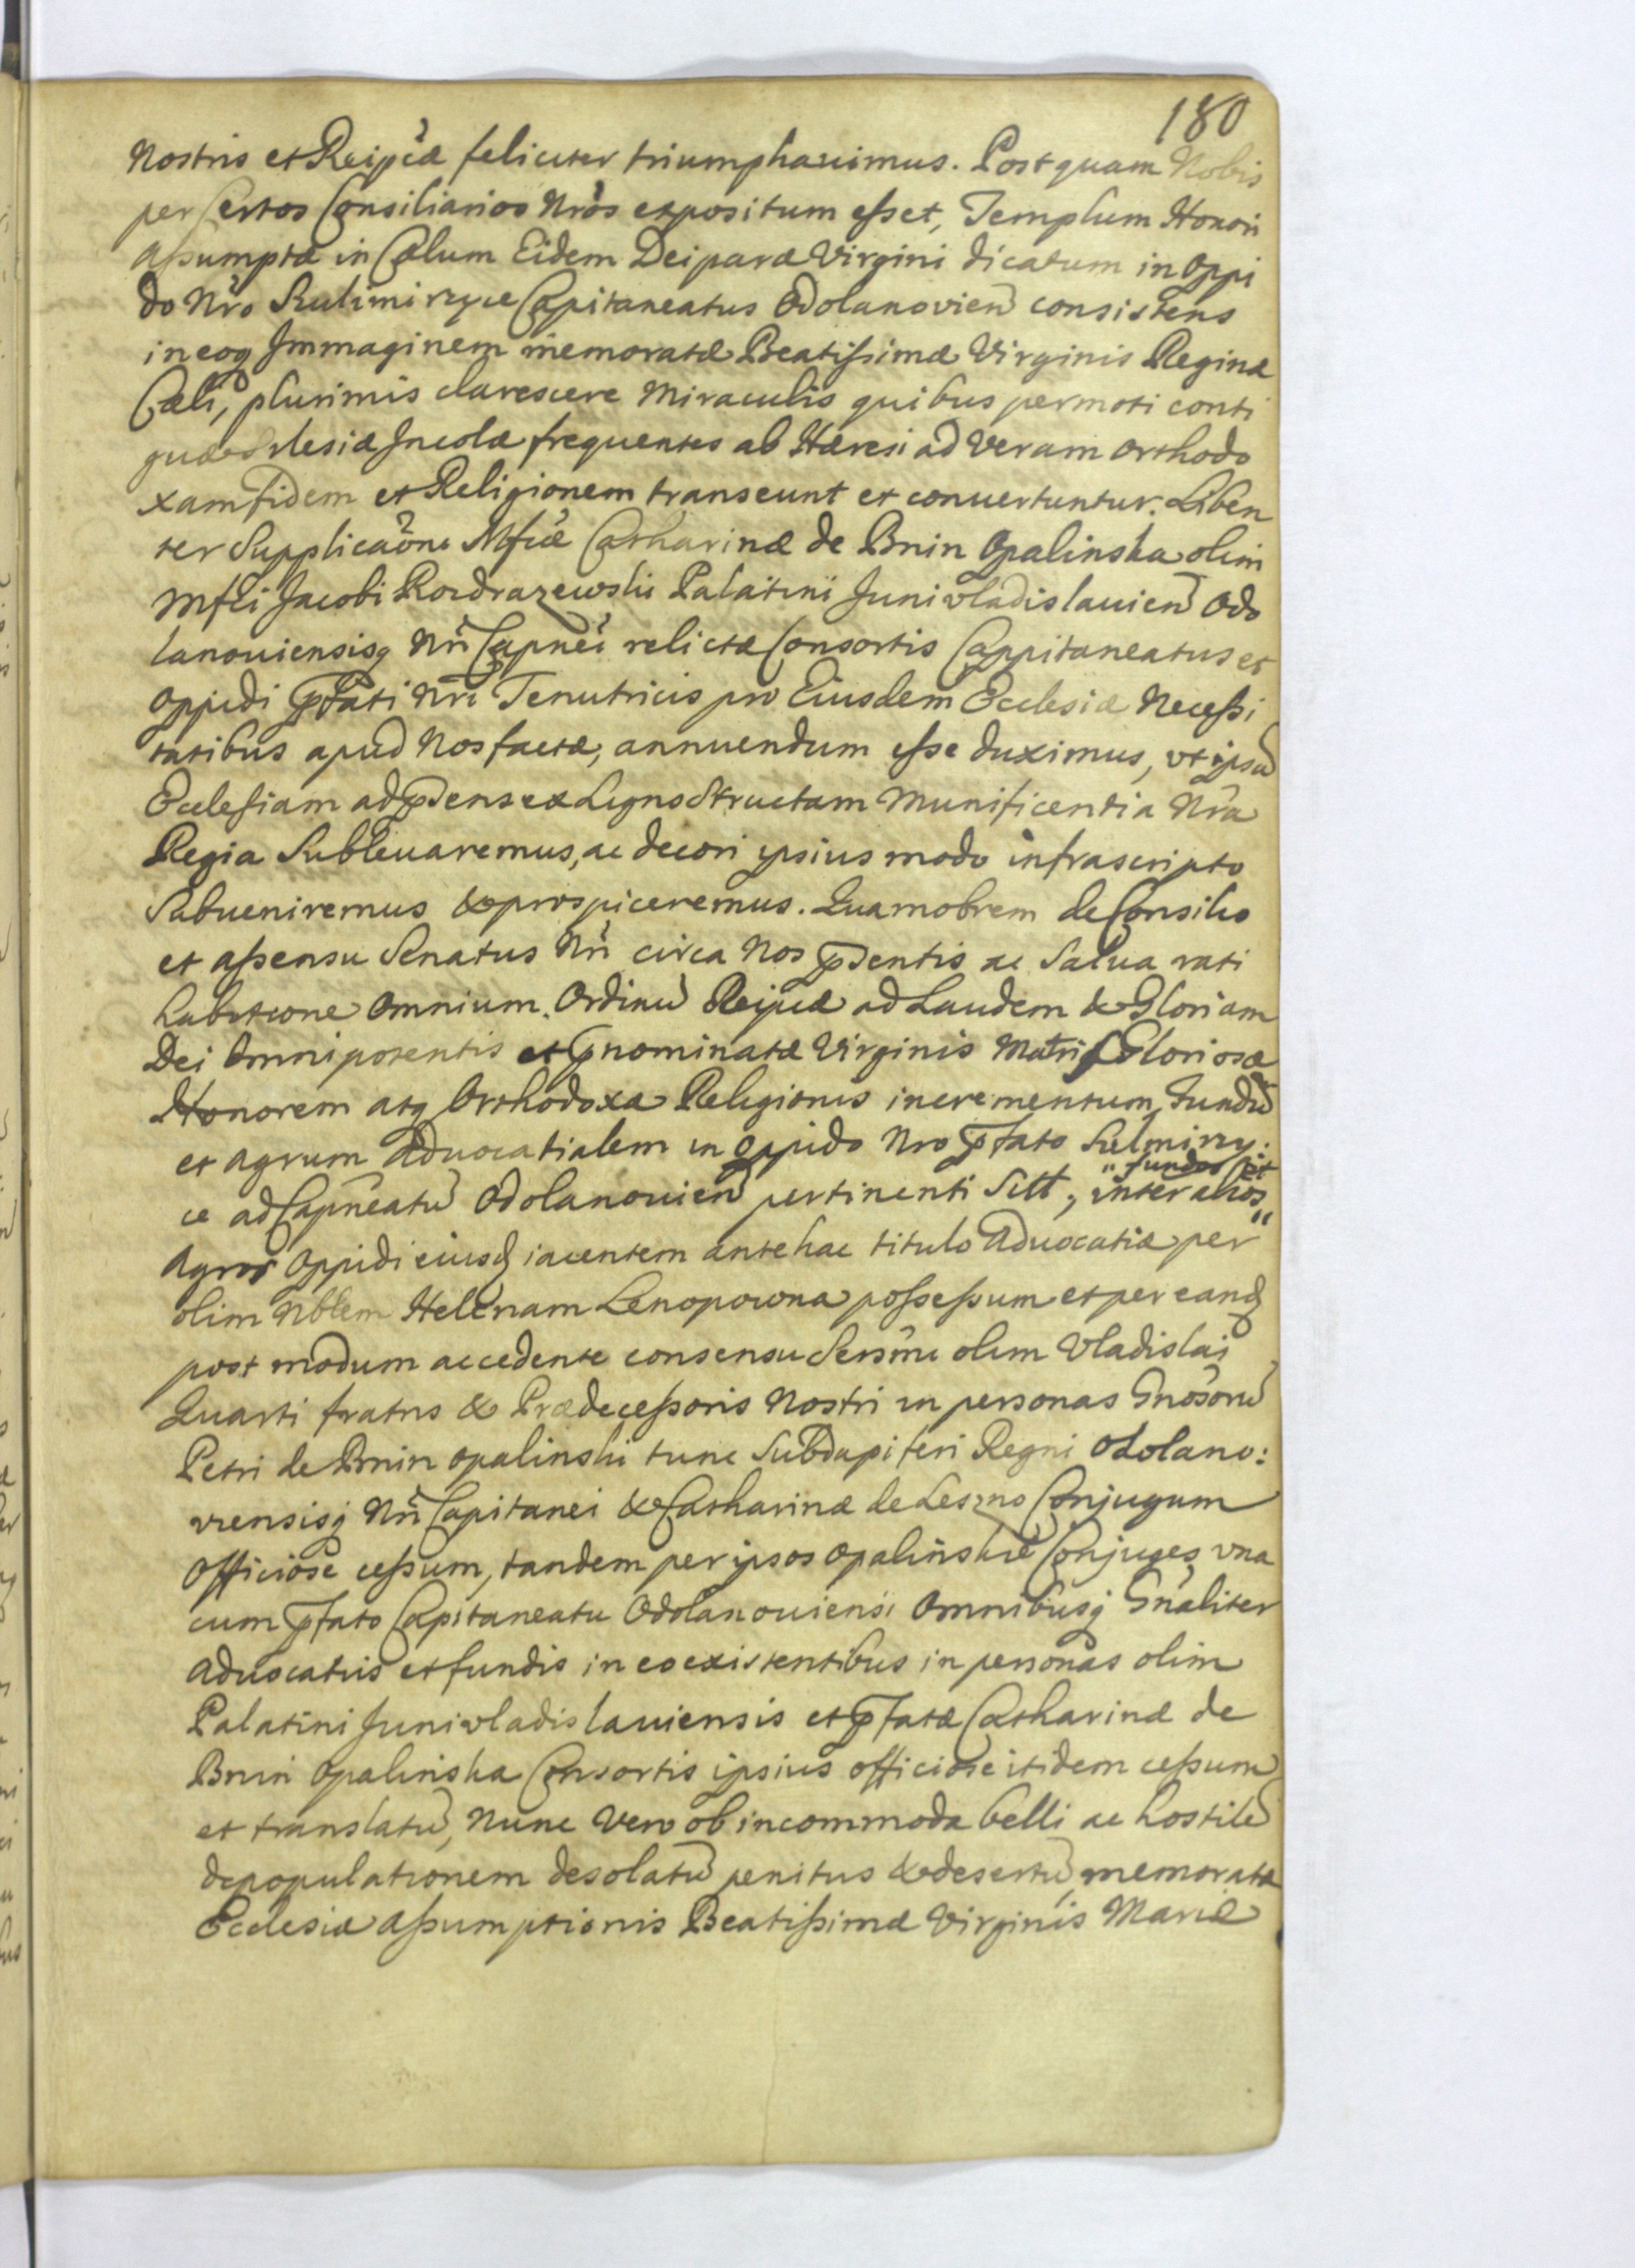 180
Nostris et Reipcæ feliciter triumphauimus. Postquam Nobis
per Certos Consiliarios Nros expositum esset, Templum Honori
Assumptæ in Cælum Eidem Deiparæ Virgini dicatum in Oppi
do Nro Sulimirzyce Capitaneatus Odolanovien consistens
in eoq Immaginem memoratæ Beatissimæ Virginis Reginæ
Cæli, plurimis clarescere Miraculis quibus permoti conti
guæ Eclesiæ Incolæ frequentes ab Hæresi ad Veram Orthodo
xam Fidem et Religionem transeunt et conuertuntur. Liben
ter Supplicaone Mfcæ Catharinæ de Bnin Opalinska olim
Mfci Jacobi Rozdrazewski Palatini Junivladislauien Odo
lanouiensisq Nri Capnei relictæ Consortis Cappitaneatus et
Oppidi pfati Nri Tenutricis pro Eiusdem Ecclesiæ Necessi
tatibus apud Nos factæ, annuendum esse duximus, vt ipsa
Ecclesiam ad pdens ex Ligno Structam Munificentia Nra
Regia Subleuaremus, ac decori ipsius modo infrascripto
Subueniremus & prospiceremus. Quamobrem de Consilio
et assensu Senatus Nri circa Nos pdentis ac Salua rati
habitione Omnium Ordinu Reipcæ ad Laudem & Gloriam
Dei Omnipotentis et pnominatæ Virginis Matris Gloriosæ
Honorem atq Orthodoxa Religionis incrementum, Fundu
et Agrum Aduocatialem in Oppido Nro pfato Sulmirzy:
"fundos et
ce ad Capneatu Odolanouien pertinenti Sitt, inter alios"
Agros Oppidi eiusd iacentem antehac titulo Aduocatiæ per
olim Nblem Helenam Lenopowna possessum et per eand
post modum accedente consensu Sersmi olim Vladislai
Quarti fratris & Prædecessoris Nostri in personas Gnosoru
Petri de Bnin Opalinski tunc Subdapiferi Regni Odolano:
viensisq Nri Capitanei & Catharinæ de Leszno Conjugum
Officiose cessum, tandem per ipsos Opalinskie Conjuges vna
cum pfato Capitaneatu Odolanouiensi Omnibusq Gnaliter
Aduocatiis et fundis in eo existentibus in personas olim
Palatini Junivladislauiensis et pfatæ Catharinæ de
Bnin Opalinska Consortis ipsius officiose itidem cessum
et translatu, Nunc Vero ob incommoda belli ac hostile
depopulationem desolatu penitus & desertu, memoratæ
Ecclesiæ Assumptionis Beatissimæ Virginis Mariæ